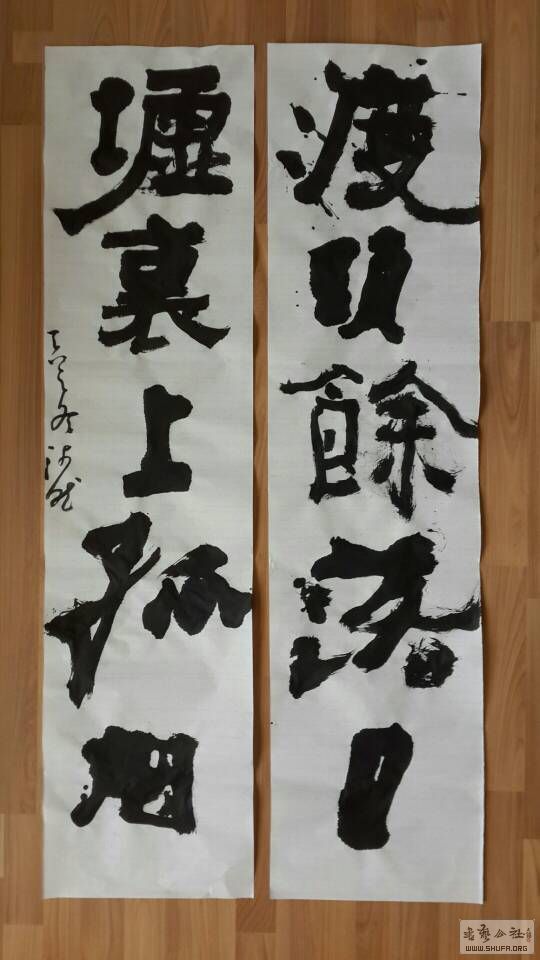 渡頭餘落日
墟裏上孤烟
书艺公社
WWW.SHUFA.ORG